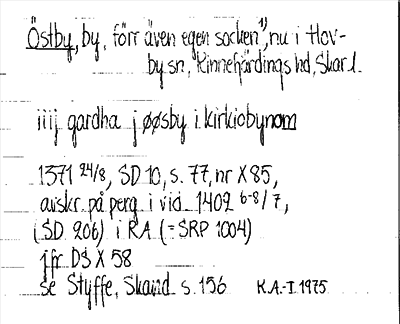 Östby, by, förr även egen socken¹⁾, nu i Hov-
by sn, Kinnefjärdings hd, Skar. l.
iiij gardha j øøsby i kirkiobynom
1371 24/8, SD 10, s. 77, nr X 85,
avskr. på perg. i vid. 1402 6-8/7,
(SD 206) i RA (= SRP 1004)
jfr DS X 58
se Styffe, Skand. s. 156 K.A.-I. 1975